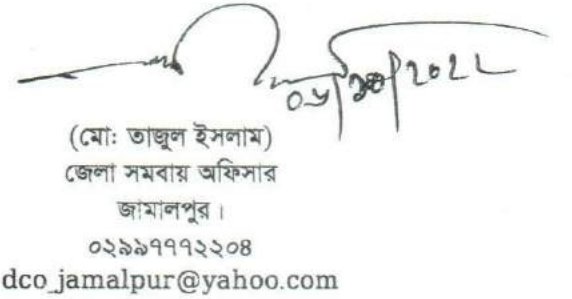 ০৬/১০/২০২২
(মোঃ তাজুল ইসলাম)
জেলা সমবায় অফিসার
জামালপুর।
০২৯৯৭৭৭২২০৪
dco_jamalpur@yahoo.com